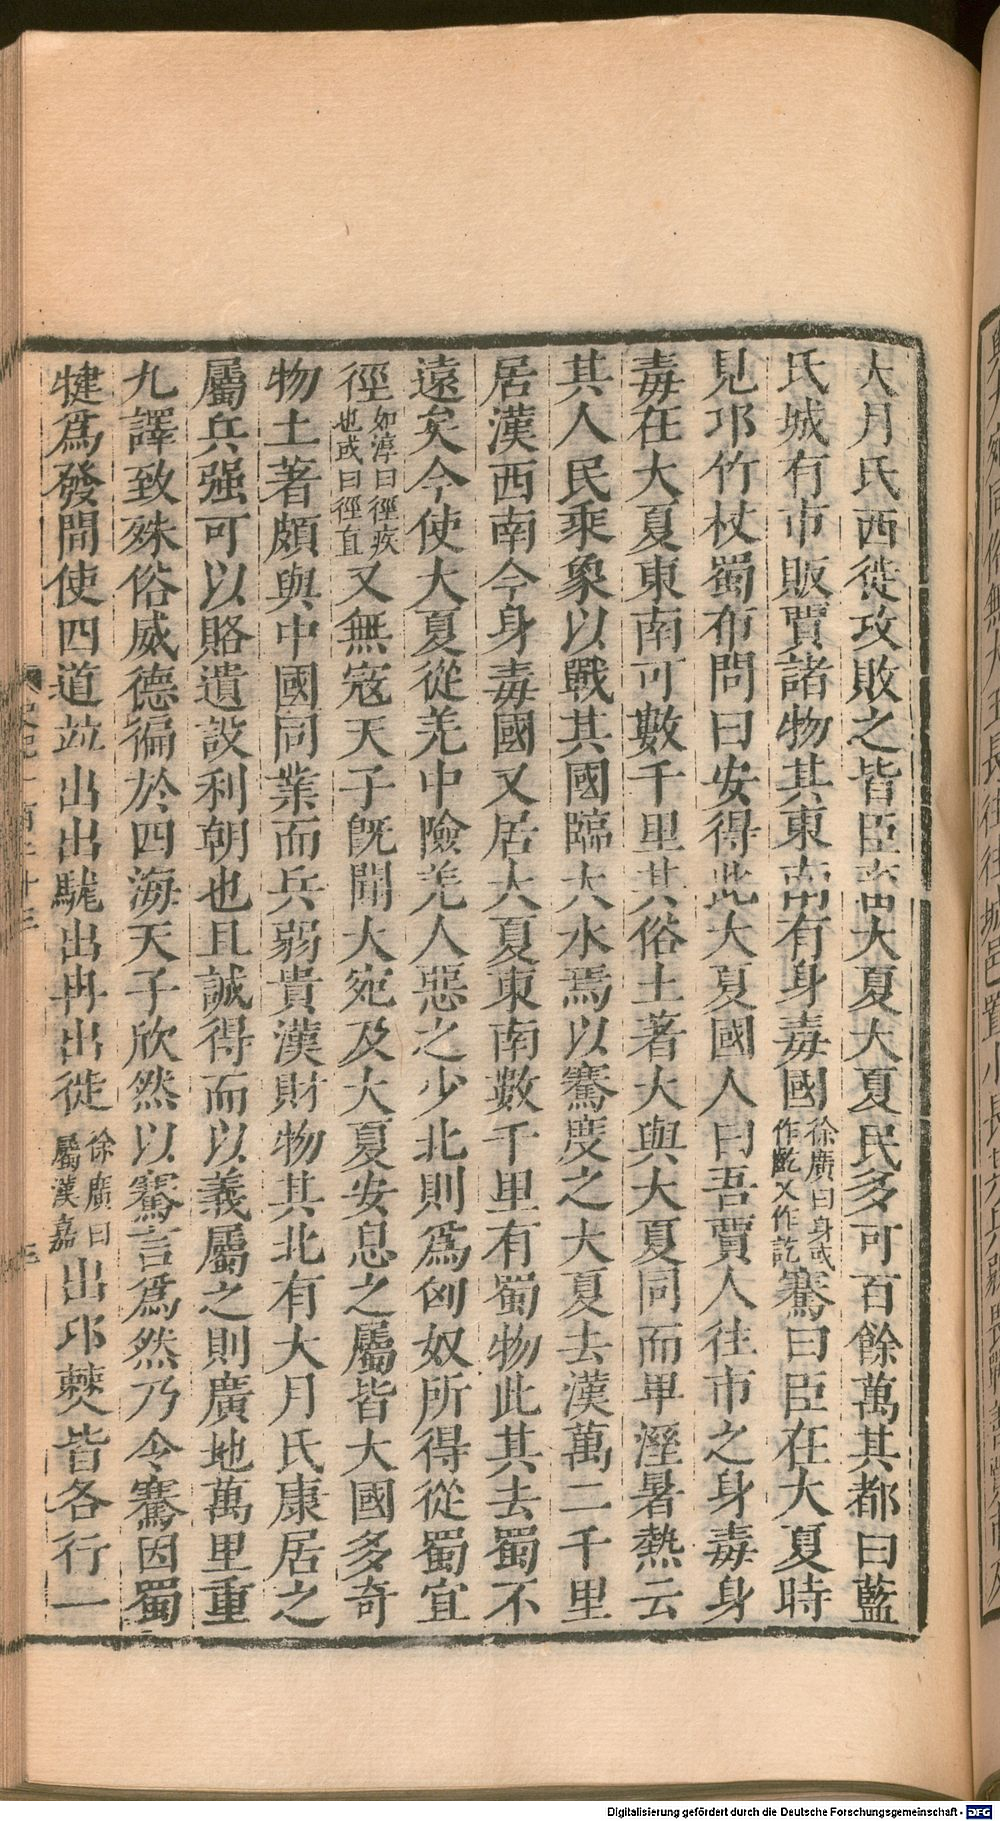 大月氏西徙攻敗之皆臣畜大夏大夏民多可百餘萬其都曰藍
氏城有市販賈諸物其東南有身毒國徐廣曰身或作乾又作訖騫曰臣在大夏時
見邛竹杖蜀布問曰安得此大夏國人曰吾賈人往市之身毒身
毒在大夏東南可數千里其俗土著大與大夏同而卑溼暑熱云
其人民乘象以戰其國臨大水焉以騫度之大夏去漢萬二千里
居漢西南今身毒國又居大夏東南數千里有蜀物此其去蜀不
遠矣今使大夏從羌中險羌人惡之少北則爲匈奴所得從蜀宜
徑如淳曰徑疾也或曰徑直又無寇天子旣聞大宛及大夏安息之屬皆大國多奇
物土著頗與中國同業而兵弱貴漢財物其北有大月氏康居之
屬兵强可以賂遺設利朝也且誠得而以義屬之則廣地萬里重
九譯致殊俗威德徧於四海天子欣然以騫言爲然乃令騫因蜀
犍爲發間使四道竝出出駹出冉出徙徐廣曰屬漢嘉出邛僰皆各行一
Digitalisierung gefördert durch die Deutsche Forschungsgemeinschaft - DFG